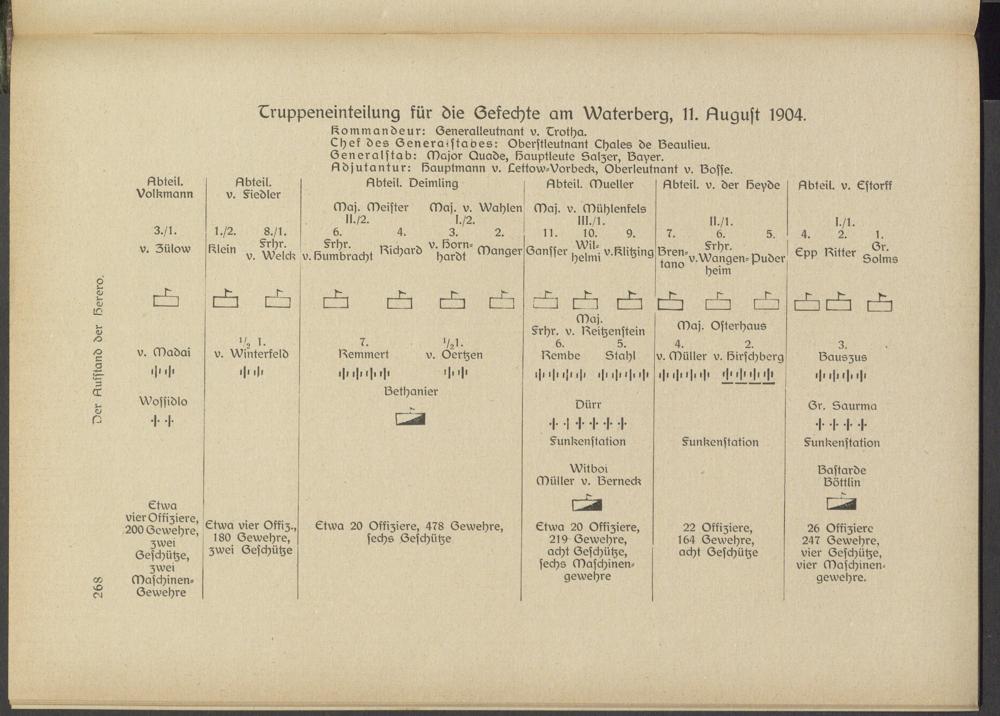 Truppeneinteilung für die Gefechte am Waterberg, 11. Auguſt 1904.
Kommandeur: Generalleutnant v. Trotha.
Chef des Generalſtabes: Oberſtleutnant Chales de Beaulieu.
Generalſtab: Major Quade, Hauptleute Salzer, Bayer.
Adjutantur: Hauptmann v. Lettow-Vorbeck, Oberleutnant v. Boſſe.
Abteil.
Volkmann
3./1.
v. Zülow
v. Madai
Woſſidlo
Etwa
vier Offiziere,
200 Gewehre,
zwei
Geſchütze,
zwei
Maſchinen-
Gewehre
Abteil.
v. Fiedler
1./2. 8./1.
Klein Frhr.
v. Welck
1/2 1.
v. Winterfeld
Etwa vier Offiz.,
180 Gewehre,
zwei Geſchütze
Abteil. Deimling
Maj. Meiſter Maj. v. Wahlen
II./2. I./2.
6. 4. 3. 2.
Frhr.
v. Humbracht Richard v. Horn-
hardt Manger
7. 1/2 1.
Remmert v. Oertzen
Bethanier
Etwa 20 Offiziere, 478 Gewehre,
ſechs Geſchütze
Abteil. Mueller
Maj. v. Mühlenfels
III./1.
11. 10. 9.
Ganſſer Wil-
helmi v. Klitzing
Maj.
Frhr. v. Reitzenſtein
6. 5.
Rembe Stahl
Dürr
Funkenſtation
Witboi
Müller v. Berneck
Etwa 20 Offiziere,
219 Gewehre,
acht Geſchütze,
ſechs Maſchinen-
gewehre
Abteil. v. der Heyde
II./1.
7. 6. 5.
Bren-
tano Frhr.
v. Wangen-
heim Puder
Maj. Oſterhaus
4. 2.
v. Müller v. Hirſchberg
Funkenſtation
22 Offiziere,
164 Gewehre,
acht Geſchütze
Abteil. v. Eſtorff
I./1.
4. 2. 1.
Epp Ritter Gr.
Solms
3.
Bauszus
Gr. Saurma
Funkenſtation
Baſtarde
Böttlin
26 Offiziere
247 Gewehre,
vier Geſchütze,
vier Maſchinen-
gewehre.
Der Aufſtand der Herero.
268